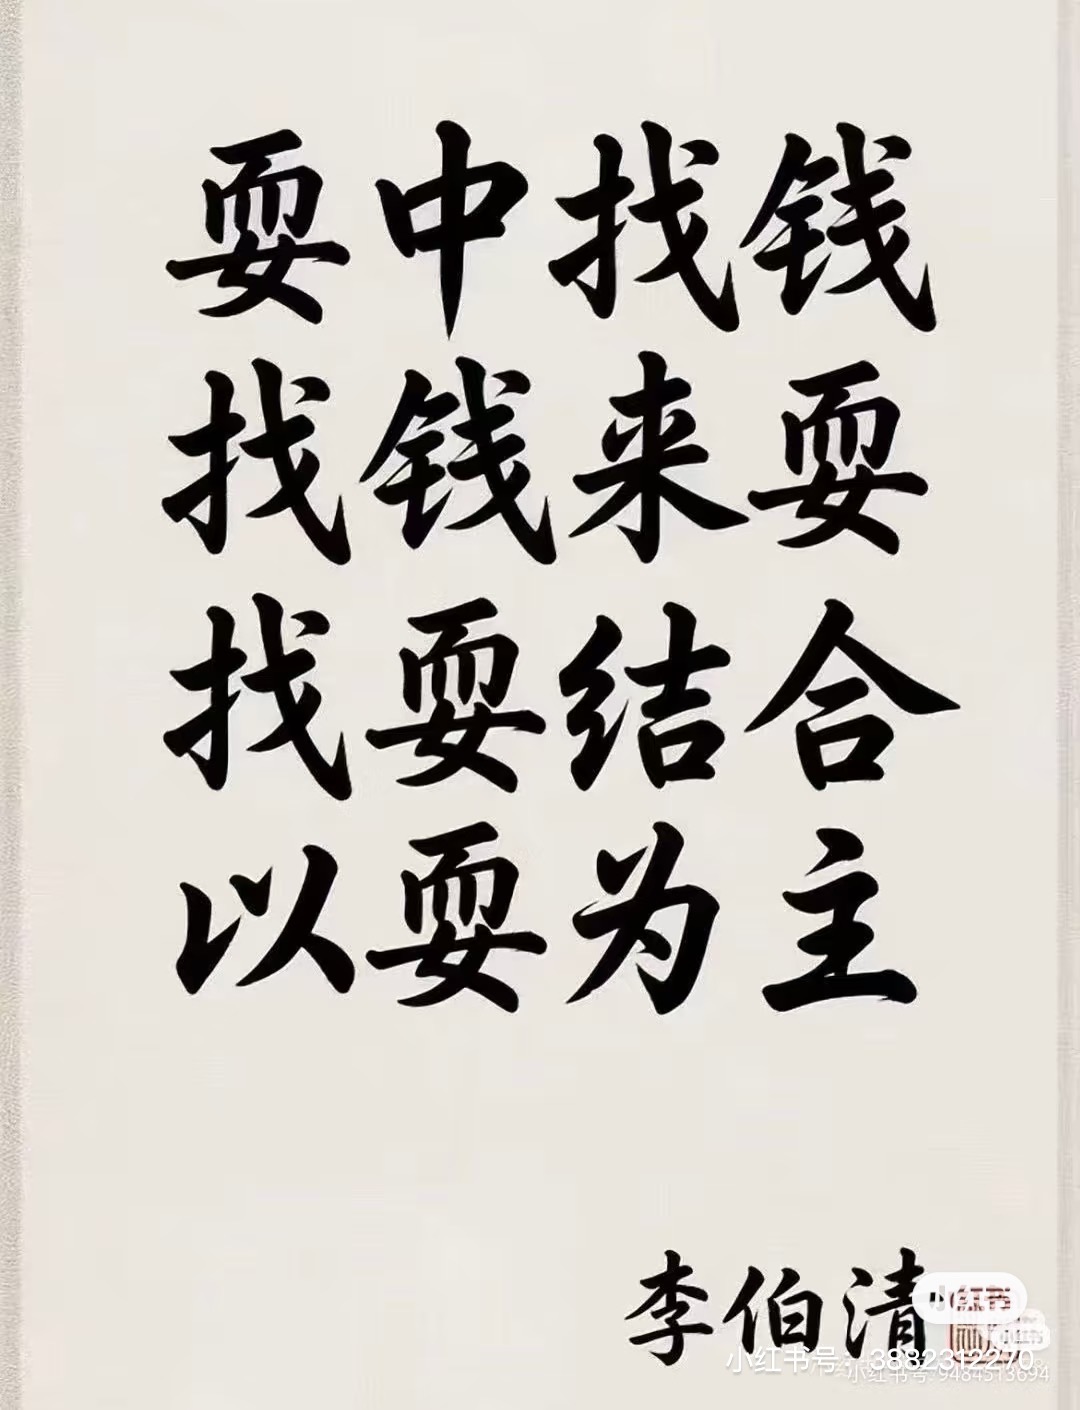 耍中找钱
找钱来耍
找耍结合
以耍为主
李伯清
小红书
小红书号：3882312270
小红书号:9484513694